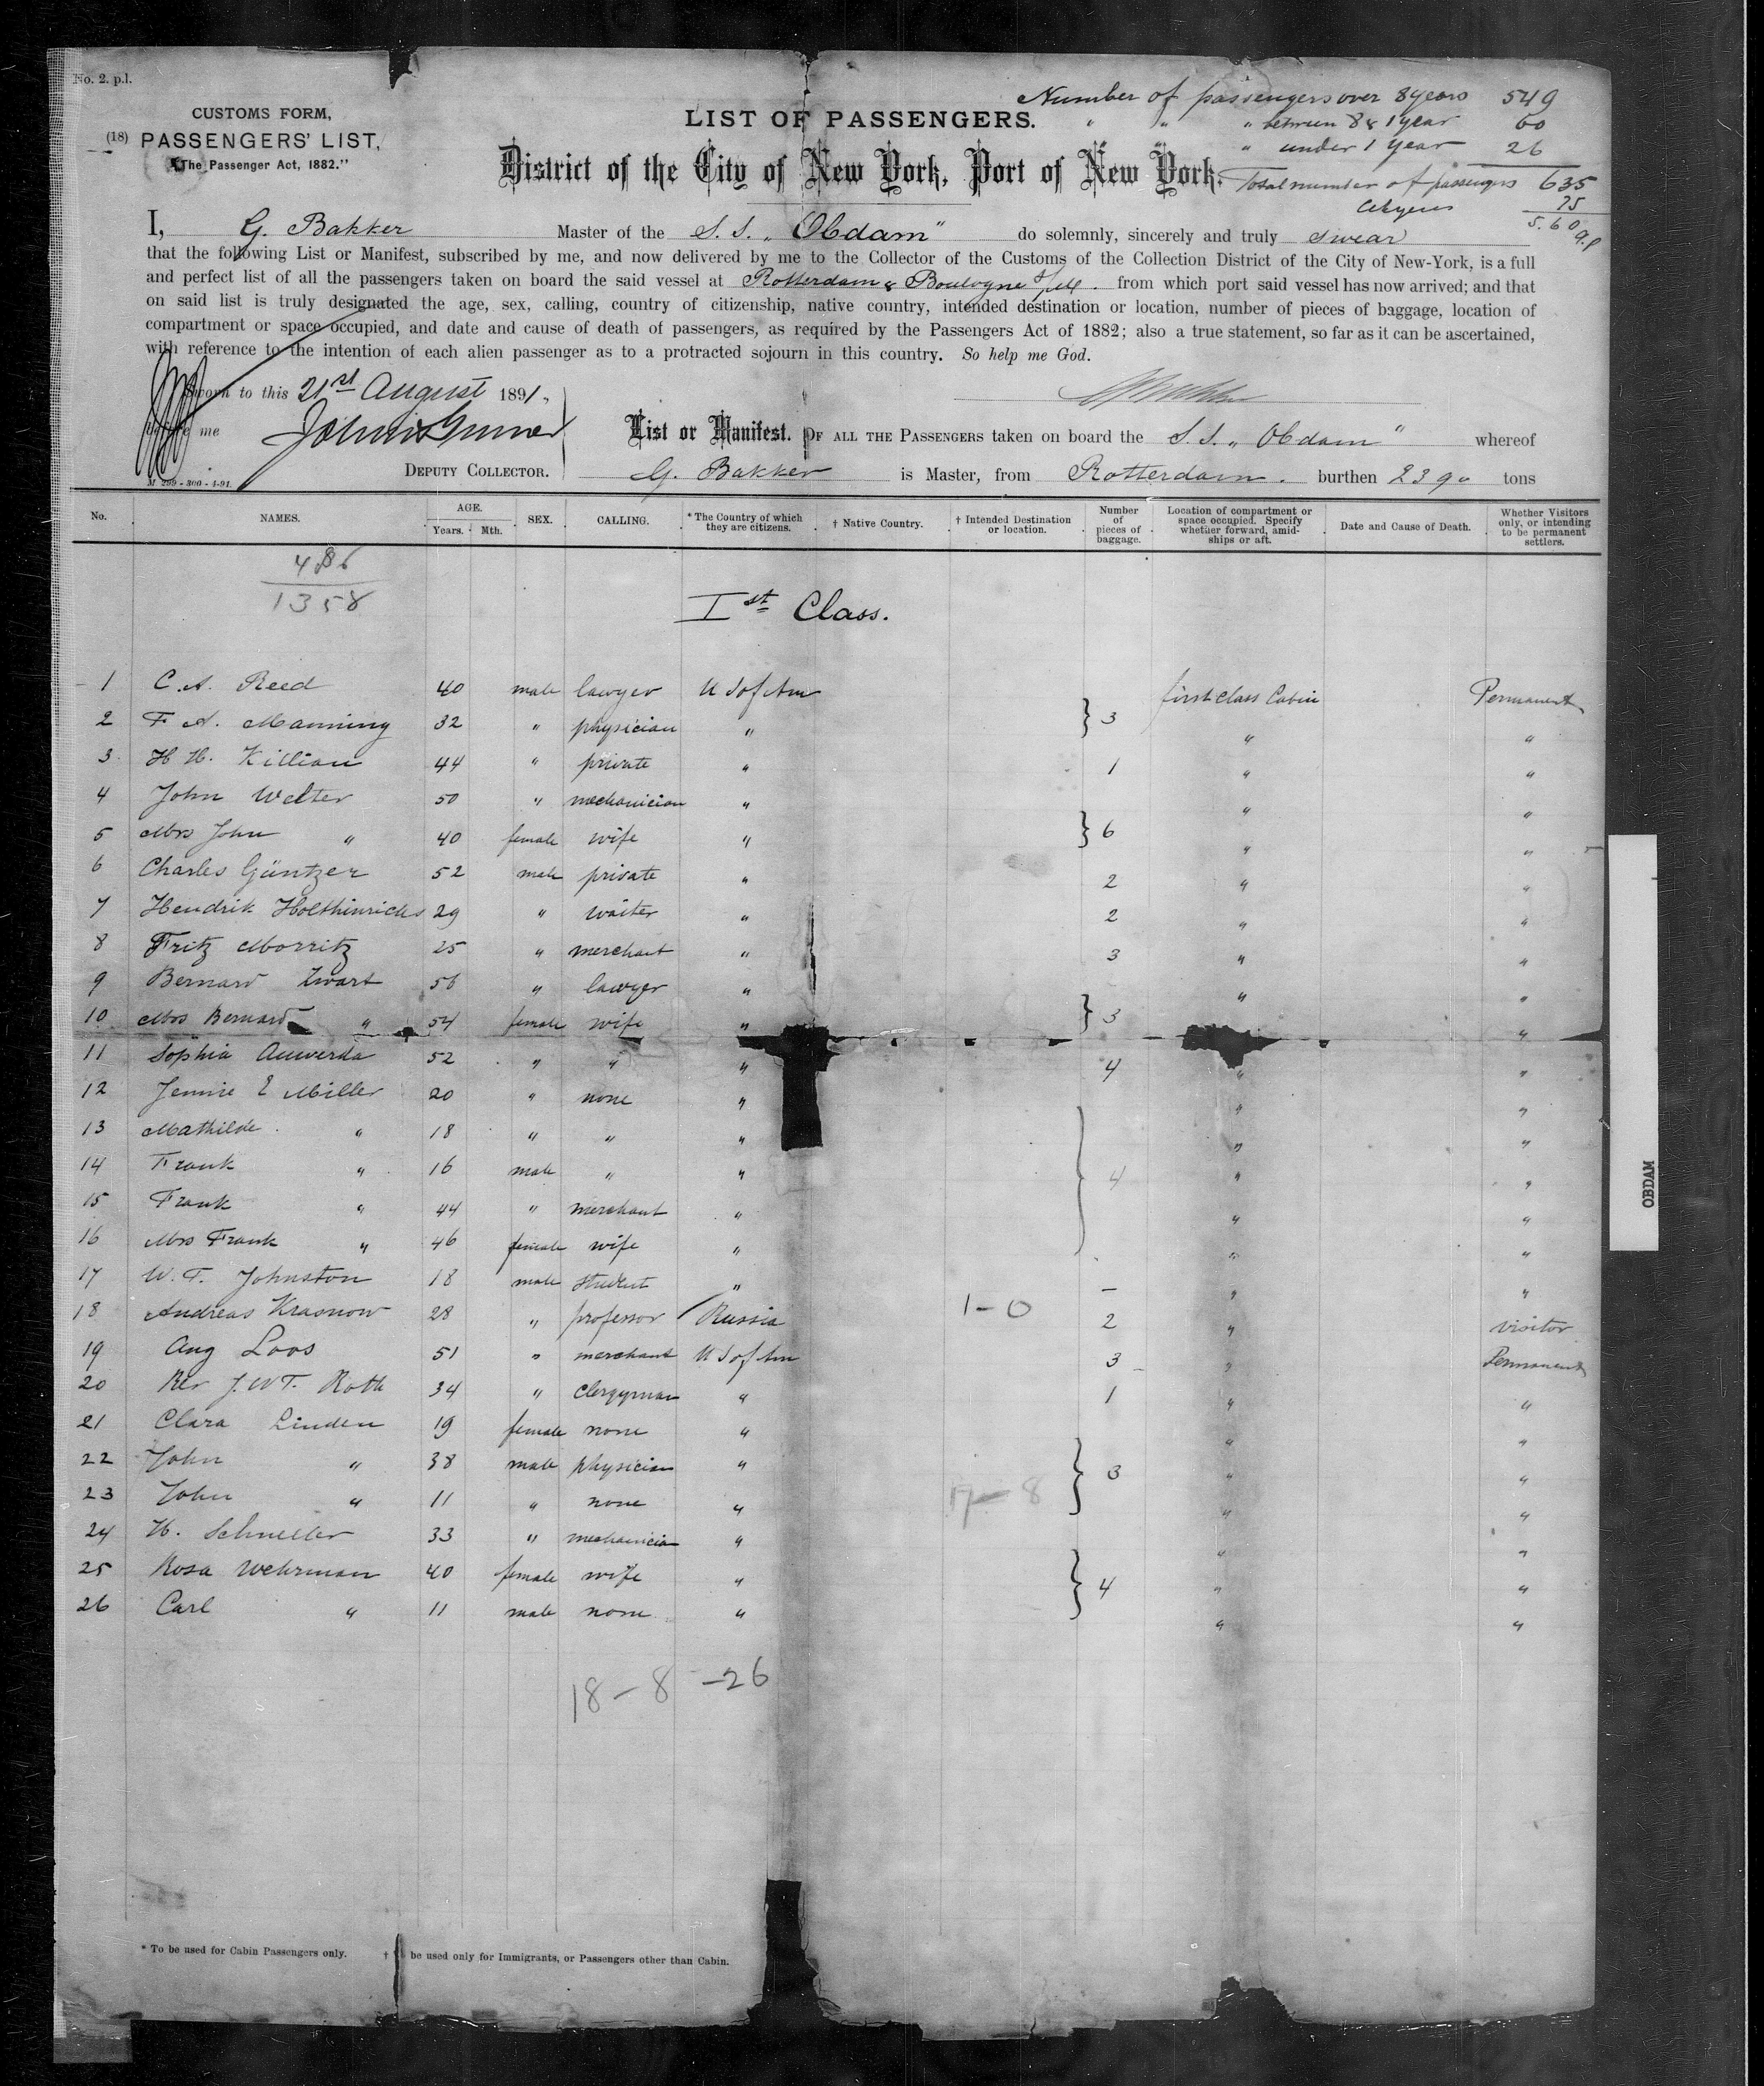 No. 2. p.l.
CUSTOMS FORM,
(18) PASSENGERS' LIST,
"The Passenger Act, 1882."
LIST OF PASSENGERS.
District of the City of New York, Port of New York.
Number of passengers over 8 years 549
" " " between 8 & 1 year 60
" under 1 year 26
Total number of passengers 635
75
5.60
I, G. Bakker Master of the S. S. „ Obdam" do solemnly, sincerely and truly swear
that the following List or Manifest, subscribed by me, and now delivered by me to the Collector of the Customs of the Collection District of the City of New-York, is a full
and perfect list of all the passengers taken on board the said vessel at Rotterdam & Boulogne from which port said vessel has now arrived; and that
on said list is truly designated the age, sex, calling, country of citizenship, native country, intended destination or location, number of pieces of baggage, location of
compartment or space occupied, and date and cause of death of passengers, as required by the Passengers Act of 1882; also a true statement, so far as it can be ascertained,
with reference to the intention of each alien passenger as to a protracted sojourn in this country. So help me God.
Sworn to this 21st August 1891.
me
DEPUTY COLLECTOR.
M 299 - 300 - 4-91.
List or Manifest. OF ALL THE PASSENGERS taken on board the S. S. „ Obdam" whereof
G. Bakker is Master, from Rotterdam. burthen 2390 tons
No. NAMES. AGE. Years. Mth. SEX. CALLING. * The Country of which they are citizens. † Native Country. † Intended Destination or location. Number of pieces of baggage. Location of compartment or space occupied. Specify whether forward, amidships or aft. Date and Cause of Death. Whether Visitors only, or intending to be permanent settlers.
486
1358
Ist Class.
1 C. A. Reed 40 male lawyer U S of Am first class Cabin Permanent
2 F A. Manning 32 " physician " } 3 " "
3 H H. Killian 44 " private " 1 " "
4 John Welter 50 " mechanician " " "
5 Mrs John " 40 female wife " } 6 " "
6 Charles Güntzer 52 male private " 2 " "
7 Hendrik Holthinrichs 29 " waiter " 2 " "
8 Fritz Morritz 25 " merchant " 3 " "
9 Bernard Zwart 56 " lawyer " " "
10 Mrs Bernard " 54 female wife " } 3 "
11 Sophia Auwerda 52 " " " 4 " "
12 Jennie E Miller 20 " none " " "
13 Mathilde " 18 " " " " "
14 Frank " 16 male " " } 4 " "
15 Frank " 44 " merchant " " "
16 Mrs Frank " 46 female wife " " "
17 W. T. Johnston 18 male student " — " "
18 Andreas Krasnow 28 " professor Russia 1-0 2 " visitor
19 Aug Loos 51 " merchant U S of Am 3 " Permanent
20 Rev J. W T. Roth 34 " clergyman " 1 " "
21 Clara Linden 19 female none " " "
22 John " 38 male physician " } 3 " "
23 John " 11 " none " 17-8 " "
24 H. Schneller 33 " mechanician " " "
25 Rosa Wehrman 40 female wife " } 4 " "
26 Carl " 11 male none " " "
18-8 -26
* To be used for Cabin Passengers only.
† be used only for Immigrants, or Passengers other than Cabin.
OBDAM